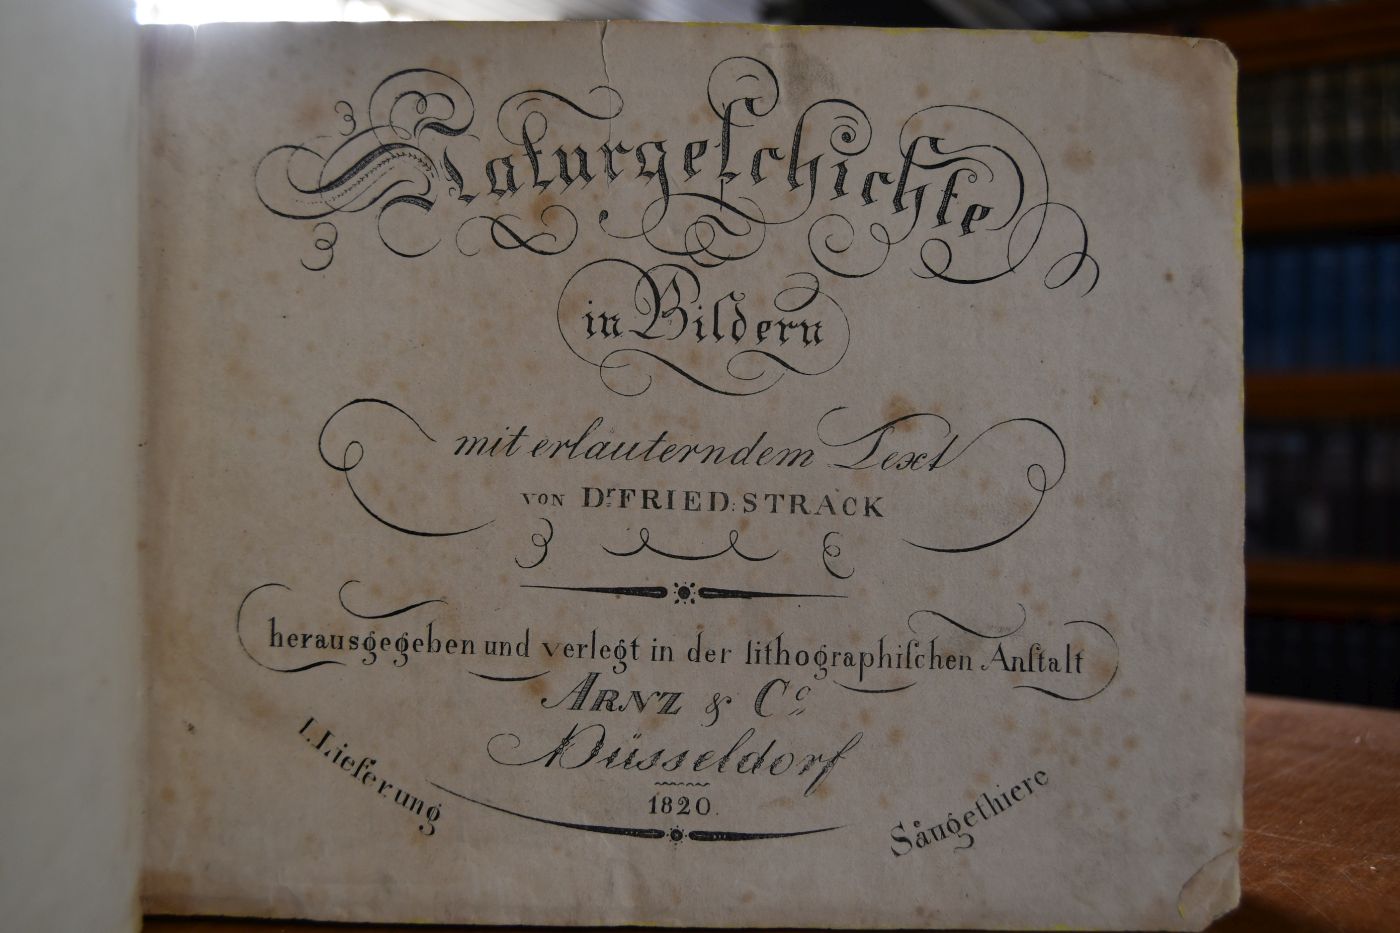 Naturgeſchichte
in Bildern
mit erläuterndem Text
VON Dr. FRIED: STRACK
herausgegeben und verlegt in der lithographiſchen Anſtalt
ARNZ & Co
Düsseldorf
1820.
1. Lieferung
Såugethiere